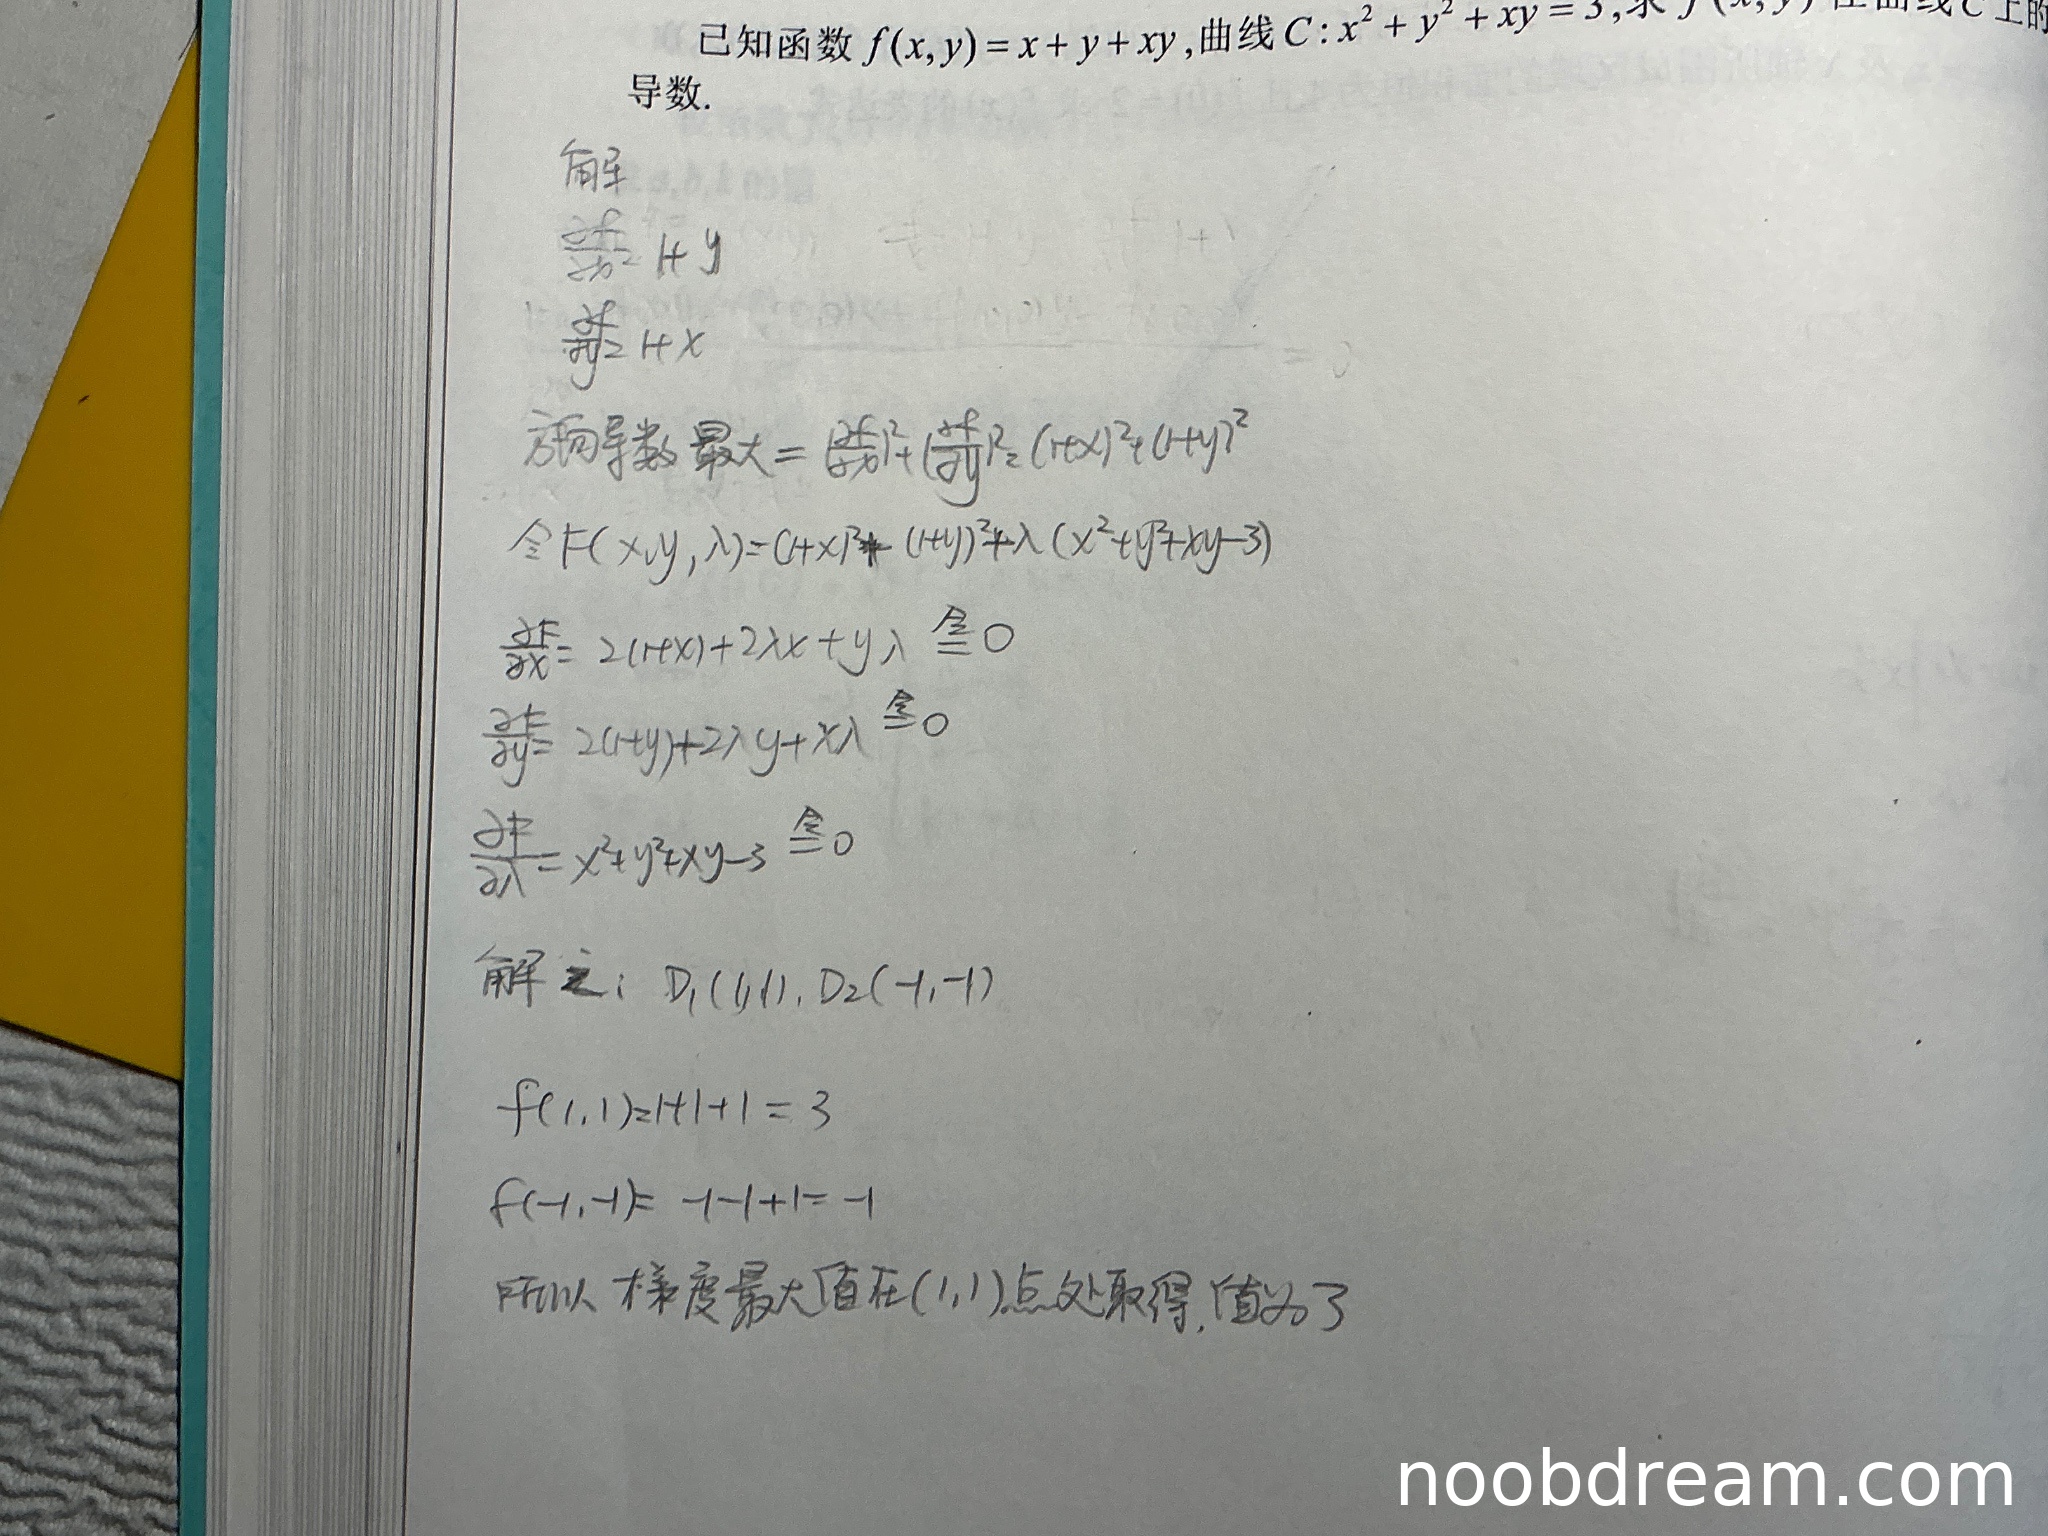 已知函数 f(x,y)=x+y+xy,曲线C:x²+y²+xy=3,求 f(x,y) 在曲线C上的
导数.
解
∂f/∂x = 1+y
∂f/∂y = 1+x
方向导数最大=(∂f/∂x)²+(∂f/∂y)²=(1+x)²+(1+y)²
令F(x,y,λ)=(1+x)²+(1+y)²+λ(x²+y²+xy-3)
∂F/∂x = 2(1+x)+2λx+yλ 令= 0
∂F/∂y = 2(1+y)+2λy+xλ 令= 0
∂F/∂λ = x²+y²+xy-3 令= 0
解之: D₁(1,1), D₂(-1,-1)
f(1,1)=1+1+1=3
f(-1,-1)= -1-1+1=-1
所以梯度最大值在(1,1)点处取得,值为3
noobdream.com